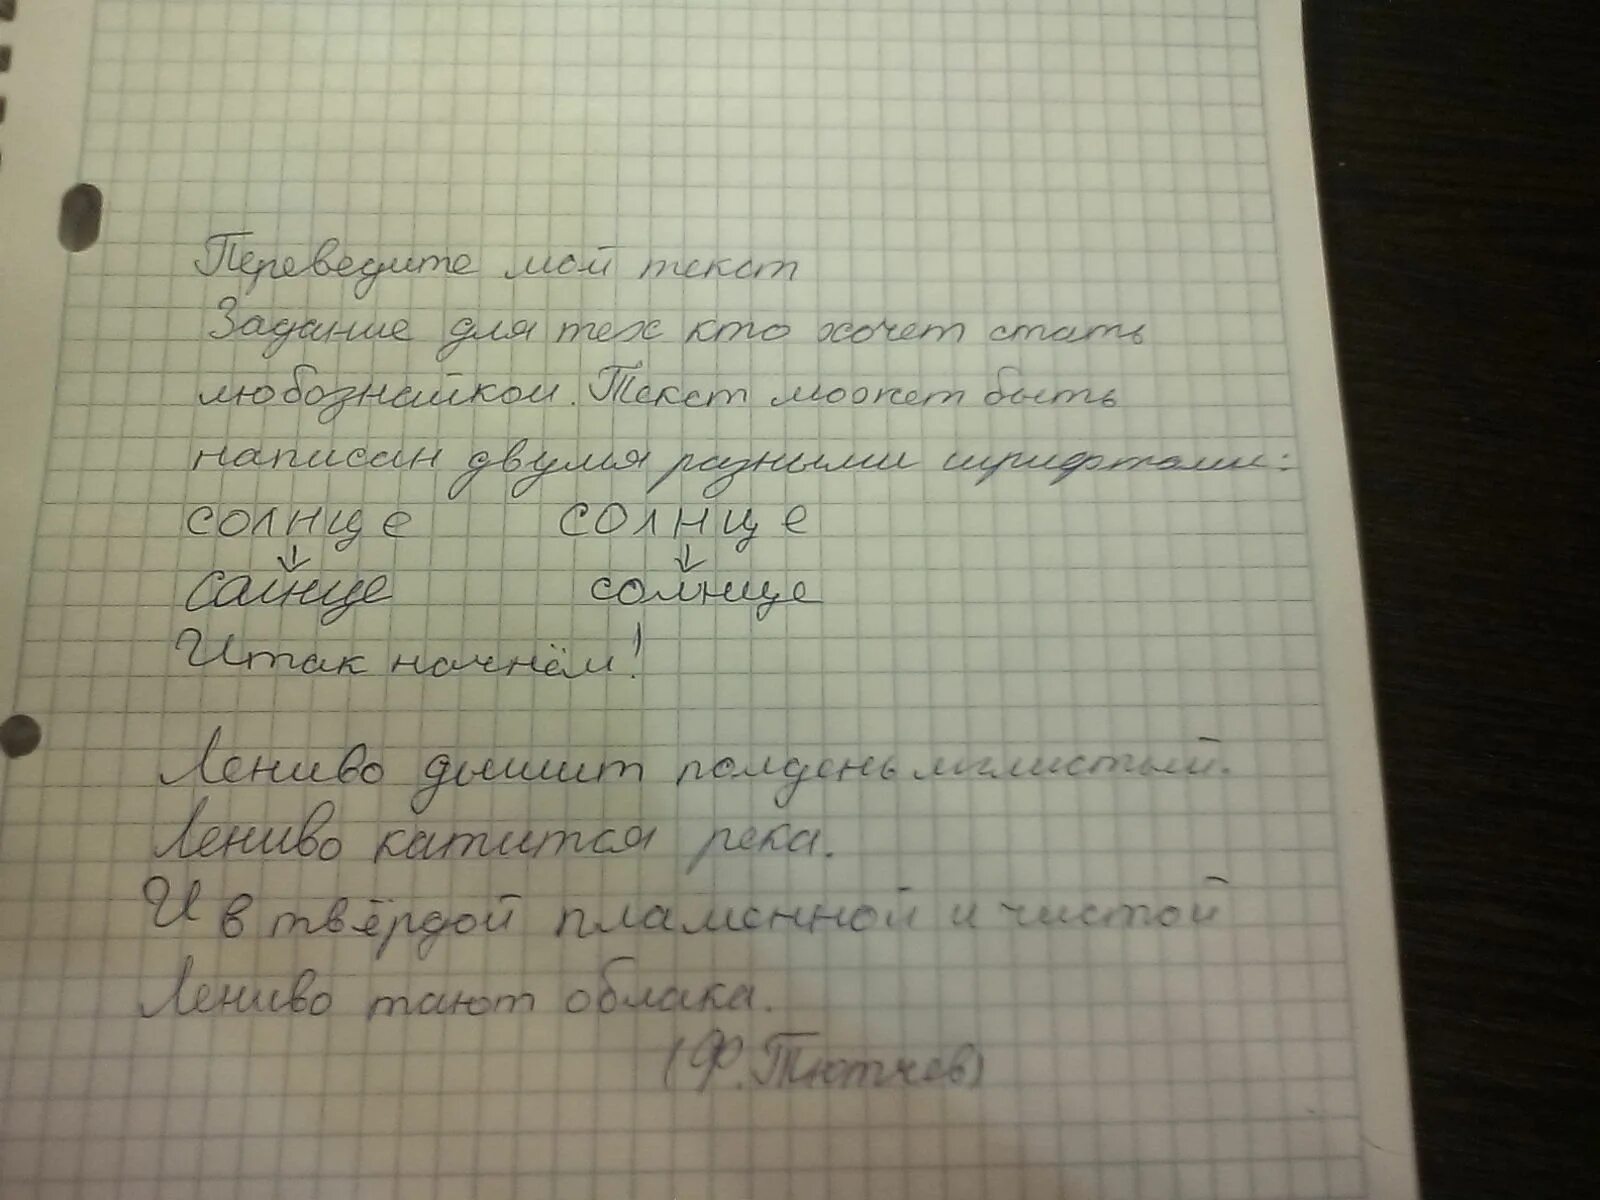 Переведите мой текст
Задание для тех кто хочет стать
любознайкой. Текст может быть
написан двумя разными шрифтами:
солнце солнце
↓ ↓
солнце солнце
Итак начнём!
Лениво дышит полдень мглистый.
Лениво катится река.
И в твёрдой пламенной и чистой
Лениво тают облака.
(Ф. Тютчев)